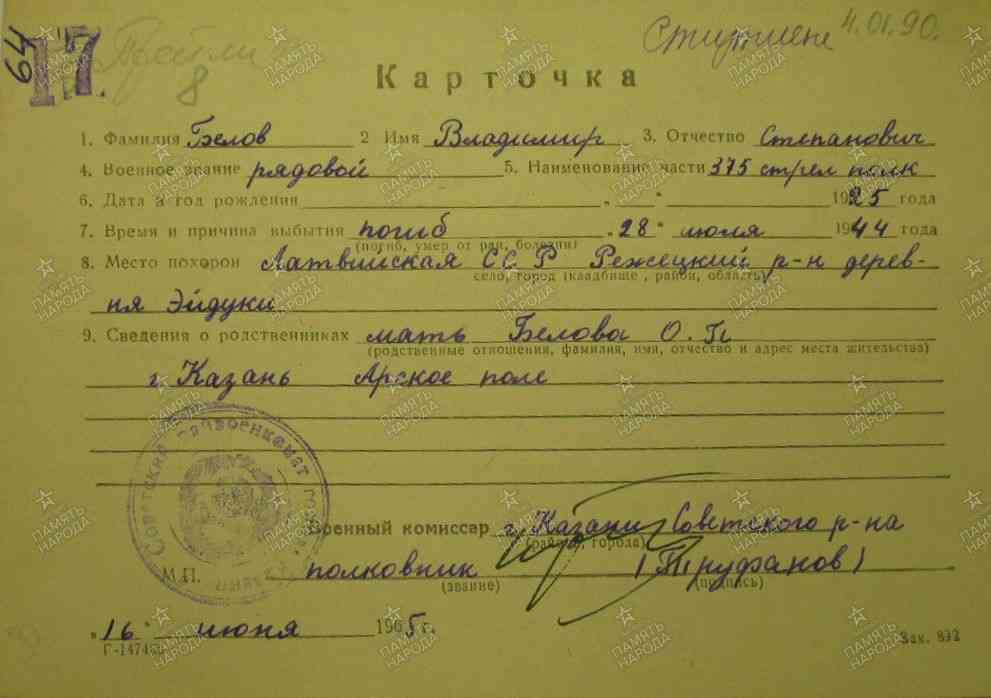 64
17.
8
4.01.90.
Карточка
1. Фамилия Белов 2 Имя Владимир 3. Отчество Степанович
4. Военное звание рядовой 5. Наименование части 375 стрел полк
6. Дата и год рождения „ " 1925 года
7. Время и причина выбытия погиб „28" июля 1944 года
(погиб, умер от ран, болезни)
8. Место похорон Латвийская ССР Режецкий р-н дерев-
село, город (кладбище, район, область)
ня Эйдуки
9. Сведения о родственниках мать Белова О. П
(родственные отношения, фамилия, имя, отчество и адрес места жительства)
г. Казань Арское поле
Советский райвоенкомат
Военный комиссар г. Казани Советского р-на
(района, города)
М.П. полковник (Труфанов)
(звание) (подпись)
„16" июня 1965 г.
Зак. 832
ПАМЯТЬ НАРОДА